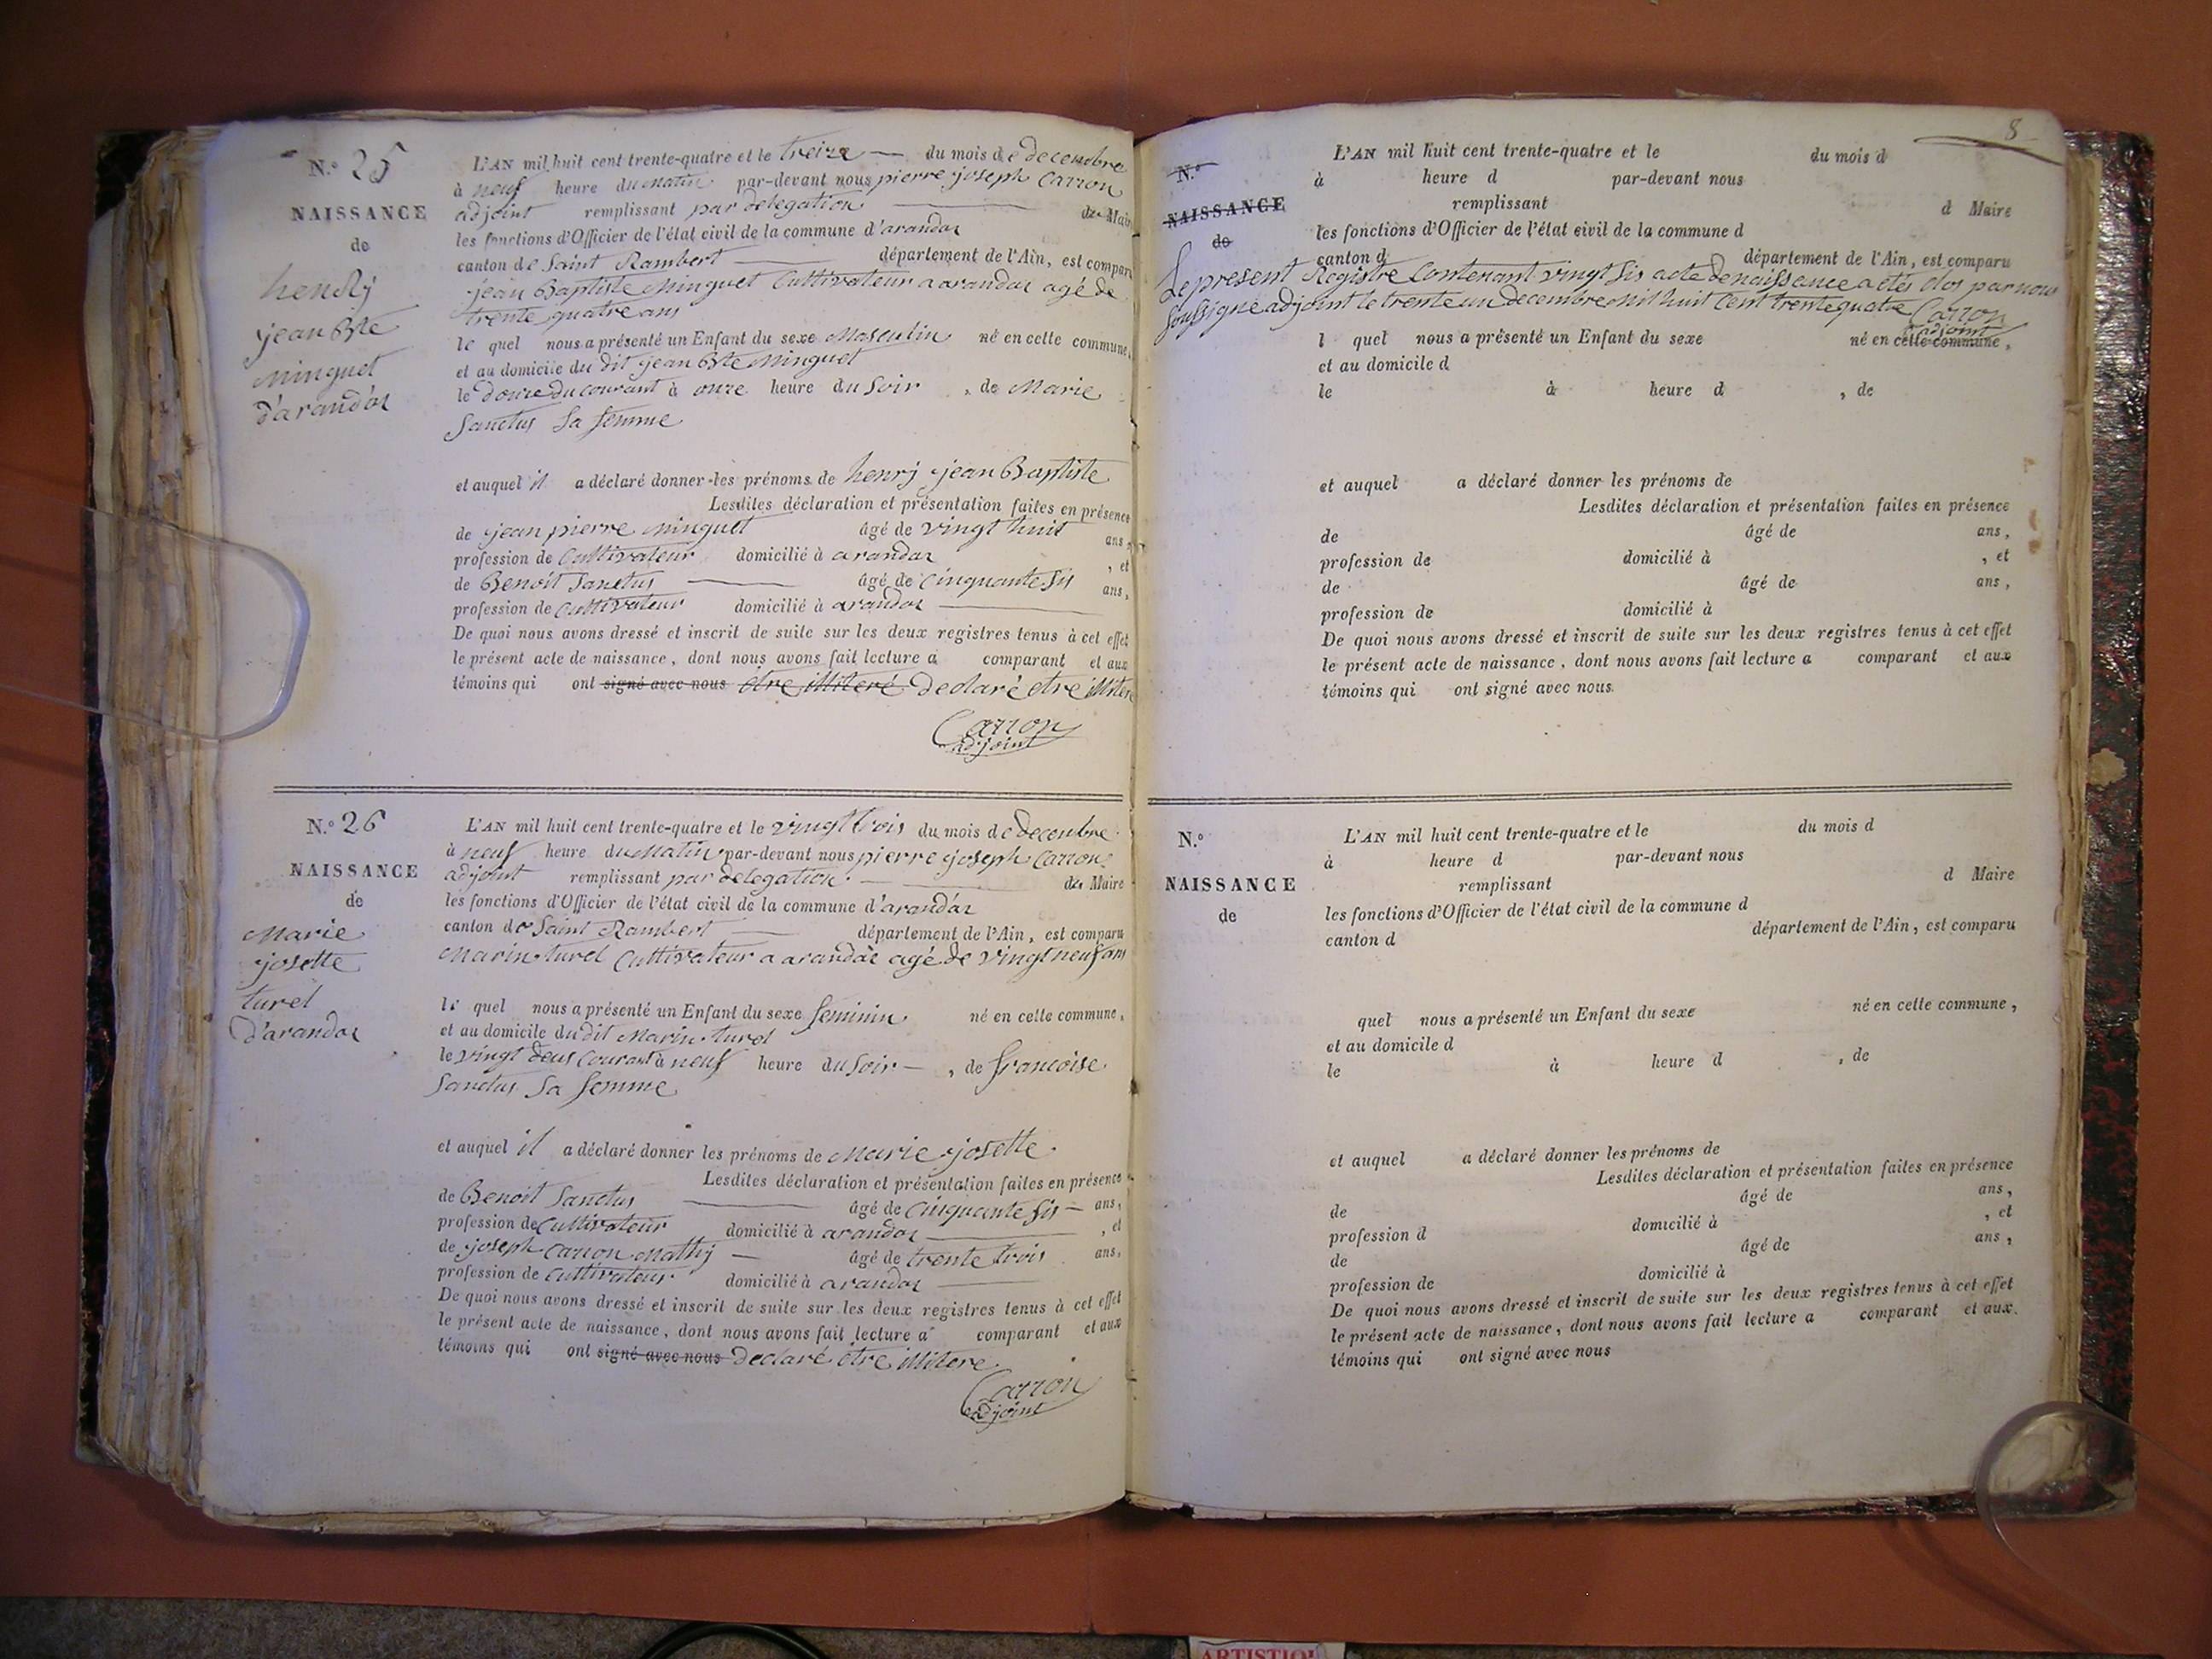 N.° 25
NAISSANCE
de
henry
jean Bte
Minguet
d'arandas
L'AN mil huit cent trente-quatre et le treize du mois de decembre
à neuf heure du matin par-devant nous pierre joseph Carron
adjoint remplissant par delegation de Maire
les fonctions d'Officier de l'état civil de la commune d'arandas
canton de Saint Rambert département de l'Ain, est comparu
jean Baptiste Minguet Cultivateur a arandas agé de
trente quatre ans
le quel nous a présenté un Enfant du sexe Masculin né en cette commune,
et au domicile du dit jean Bte Minguet
le douze du courant à onze heure du Soir, de Marie
Sanctus Sa femme
et auquel il a déclaré donner les prénoms de henry jean Baptiste
Lesdites déclaration et présentation faites en présence
de jean pierre Minguet âgé de vingt huit ans,
profession de Cultivateur domicilié à arandas, et
de Benoit Sanctus âgé de Cinquante Sis ans,
profession de Cultivateur domicilié à arandas
De quoi nous avons dressé et inscrit de suite sur les deux registres tenus à cet effet
le présent acte de naissance, dont nous avons fait lecture a comparant et aux
témoins qui ont signé avec nous etre illiteré declaré etre illitere
Carron
adjoint
N.° 26
NAISSANCE
de
Marie
josette
turel
d'arandas
L'AN mil huit cent trente-quatre et le vingt trois du mois de decembre
à neuf heure du Matin par-devant nous pierre joseph Carron
adjoint remplissant par delegation de Maire
les fonctions d'Officier de l'état civil de la commune d'arandas
canton de Saint Rambert département de l'Ain, est comparu
Marin turel Cultivateur a arandas agé de vingt neuf ans
le quel nous a présenté un Enfant du sexe feminin né en cette commune,
et au domicile du dit Marin turel
le vingt deus Courant à neuf heure du Soir, de francoise
Sanctus Sa femme
et auquel il a déclaré donner les prénoms de Marie josette
Lesdites déclaration et présentation faites en présence
de Benoit Sanctus âgé de Cinquante Sis ans,
profession de Cultivateur domicilié à arandas, et
de joseph Carron Mathy âgé de trente trois ans,
profession de Cultivateur domicilié à arandas
De quoi nous avons dressé et inscrit de suite sur les deux registres tenus à cet effet
le présent acte de naissance, dont nous avons fait lecture a comparant et aux
témoins qui ont signé avec nous declaré être illitere
Carron
adjoint
8
N.°
NAISSANCE
de
L'AN mil huit cent trente-quatre et le du mois d
à heure d par-devant nous
remplissant d Maire
les fonctions d'Officier de l'état civil de la commune d
canton d département de l'Ain, est comparu
Le present Registre Contenant vingt Sis acte de naissance a étés clos par nous
Soussigné adjoint le trente un decembre mil huit Cent trente quatre Carron
adjoint
l quel nous a présenté un Enfant du sexe né en cette commune,
et au domicile d
le à heure d , de
et auquel a déclaré donner les prénoms de
Lesdites déclaration et présentation faites en présence
de âgé de ans,
profession de domicilié à , et
de âgé de ans,
profession de domicilié à
De quoi nous avons dressé et inscrit de suite sur les deux registres tenus à cet effet
le présent acte de naissance, dont nous avons fait lecture a comparant et aux
témoins qui ont signé avec nous
N.°
NAISSANCE
de
L'AN mil huit cent trente-quatre et le du mois d
à heure d par-devant nous
remplissant d Maire
les fonctions d'Officier de l'état civil de la commune d
canton d département de l'Ain, est comparu
quel nous a présenté un Enfant du sexe né en cette commune,
et au domicile d
le à heure d , de
et auquel a déclaré donner les prénoms de
Lesdites déclaration et présentation faites en présence
de âgé de ans,
profession d domicilié à , et
de âgé de ans,
profession de domicilié à
De quoi nous avons dressé et inscrit de suite sur les deux registres tenus à cet effet
le présent acte de naissance, dont nous avons fait lecture a comparant et aux
témoins qui ont signé avec nous